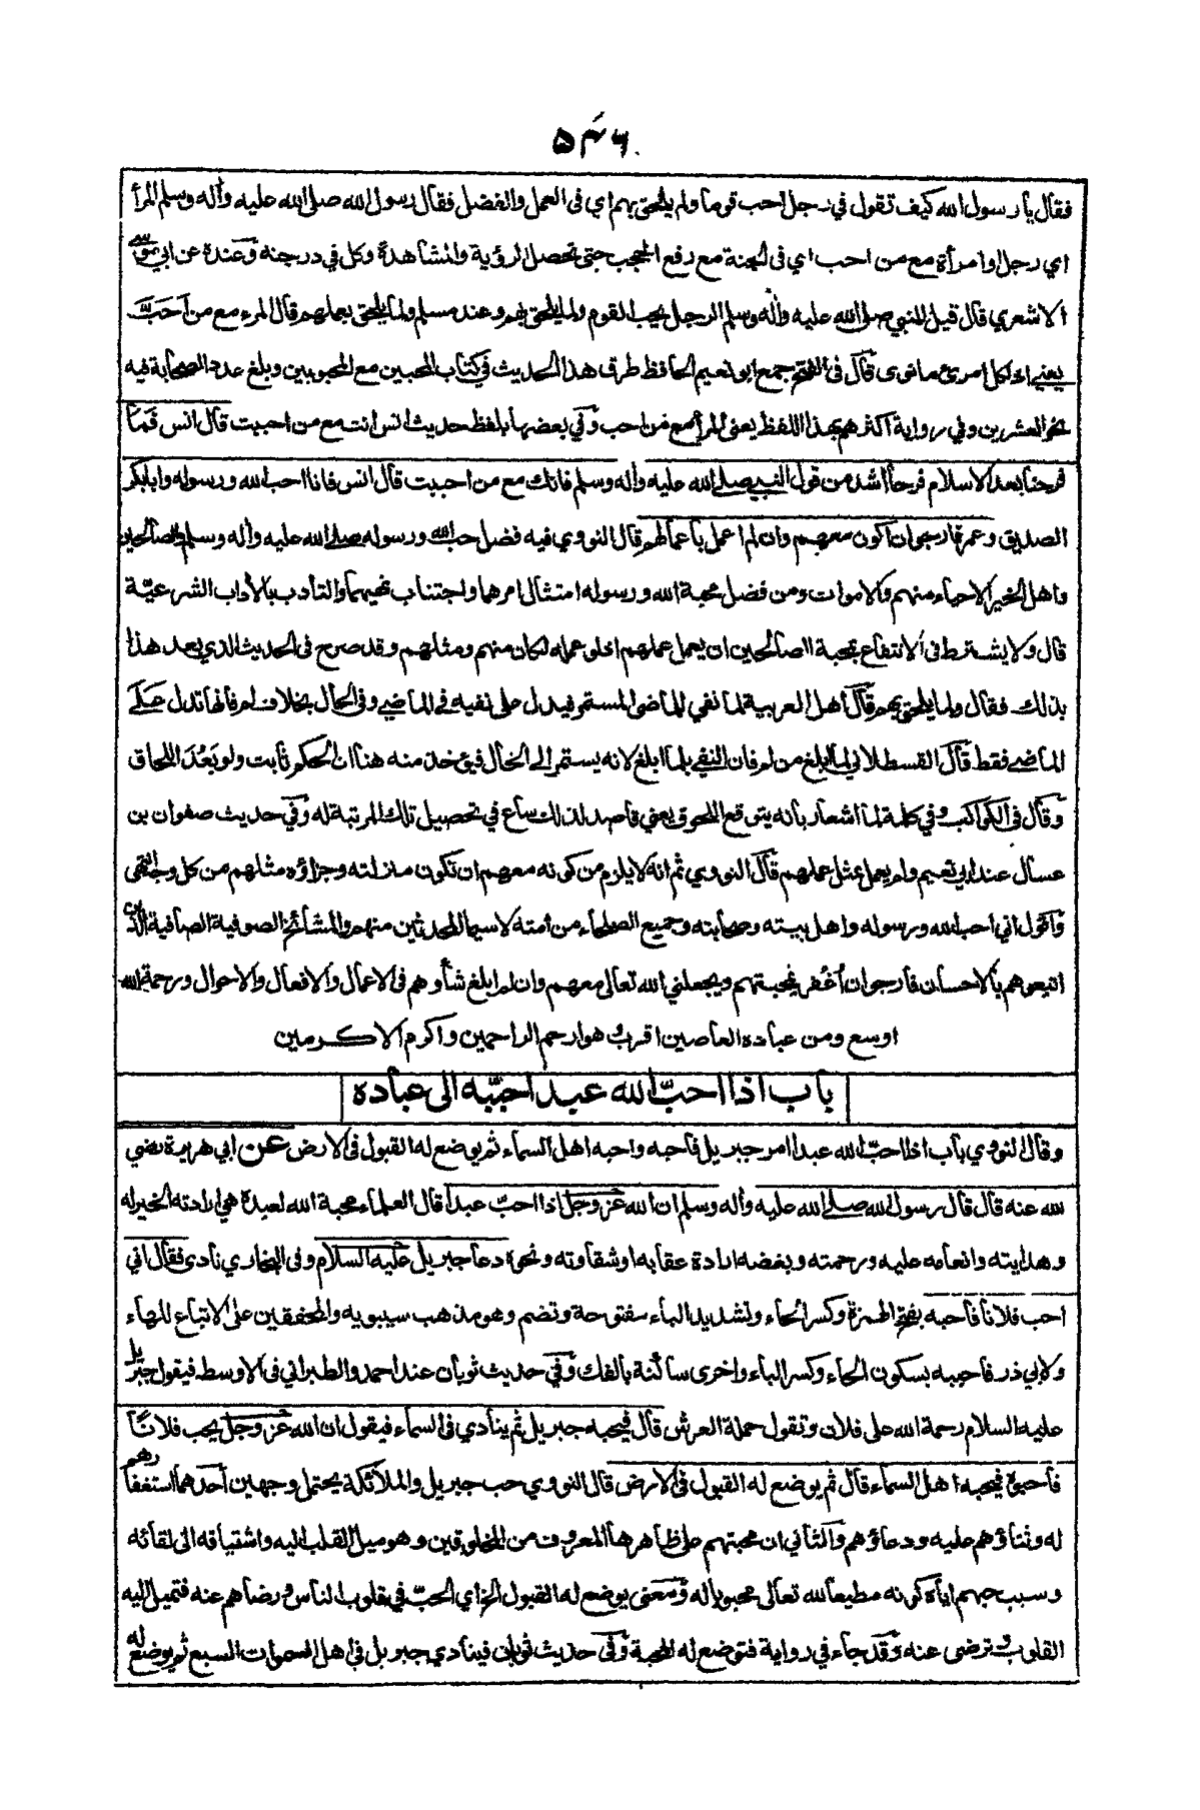 ۵۴۶
فقال يا رسول الله كيف تقول في رجل احب قوما ولم يلحق بهم اي في العمل والفضل فقال رسول الله صلى الله عليه وأله وسلم المرأ
اي رجل وامرأة مع من احب اي في الجنة مع رفع الحجب حتى تحصل الرؤية والمشاهدة وكل في درجته وعنده عن ابي موسى
الاشعري قال قيل للنبي صلى الله عليه وأله وسلم الرجل يحب القوم ولما يلحق بهم وعند مسلم ولما يلحق بعملهم قال المرء مع من احبّ
يعني ان لكل امرئ ما نوى قال في الفتح جمع ابو نعيم الحافظ طرق هذا الحديث في كتاب المحبين مع المحبوبين وبلغ عدد الصحابة فيه
نحو العشرين وفي رواية اكثرهم بهذا اللفظ يعني المرأ مع من احب وفي بعضها بلفظ حديث انس انت مع من احببت قال انس فما
فرحنا بعد الاسلام فرحا اشد من قول النبي صلى الله عليه وأله وسلم فانك مع من احببت قال انس فانا احب الله ورسوله وابابكر
الصديق وعمر فارجوان اكون معهم وان لم اعمل بأعمالهم قال النووي فيه فضل حب الله ورسوله صلى الله عليه وأله وسلم والصالحين
واهل الخير الاحياء منهم والاموات ومن فضل محبة الله ورسوله امتثال امرهما واجتناب نهيهما والتأدب بالأداب الشرعيّة
قال ولا يشترط في الانتفاع بمحبة الصالحين ان يعمل عملهم اذ لو عمله لكان منهم ومثلهم وقد صرح في الحديث الذي بعد هذا
بذلك فقال ولما يلحق بهم قال اهل العربية لما نفي للماضي المستمر فيدل على نفيه في الماضي وفي الحال بخلاف لم فانها تدل على
الماضي فقط قال القسطلاني لما ابلغ من لم فان النفي بلما ابلغ لانه يستمر الى الحال فيؤخذ منه هنا ان الحكم ثابت ولو بَعُدَ اللحاق
وقال في الكواكب وفي كلمة لما اشعار بأنه يتوقع اللحوق يعني قاصد لذلك ساع في تحصيل تلك المرتبة له وفي حديث صفوان بن
عسال عند ابي نعيم ولم يعمل بمثل عملهم قال النووي ثم انه لا يلزم من كونه معهم ان تكون منزلته وجزاؤه مثلهم من كل وجه انتهى
واقول اني احب الله ورسوله واهل بيته وصحابته وجميع الصلحاء من أمته لا سيما المحدثين منهم والمشائخ الصوفية الصافية الذين
اتبعوهم بالاحسان فأرجوان أغفر بمحبتهم ويجعلني الله تعالى معهم وان لم ابلغ شأوهم في الاعمال والافعال والاحوال ورحمة الله
اوسع ومن عباده العاصين اقرب وهو ارحم الراحمين واكرم الاكرمين
باب اذا احبّ الله عبدا حبّبه الى عباده
وقال النووي باب اذا احبّ الله عبدا امر جبريل فأحبه واحبه اهل السماء ثم يوضع له القبول في الارض عن ابي هريرة رضي
الله عنه قال قال رسول الله صلى الله عليه وأله وسلم ان الله عز وجل اذا احبّ عبدا قال العلماء محبة الله لعبده هي ارادته الخير له
وهدايته وانعامه عليه ورحمته وبغضه ارادة عقابه اوشقاوته ونحوه دعا جبريل عليه السلام وفي البخاري نادى فقال اني
احب فلانا فأحبه بفتح الهمزة وكسر الحاء وتشديد الباء مفتوحة وتضم وهو مذهب سيبويه والمحققين على الاتباع للهاء
ولابي ذر فأحببه بسكون الحاء وكسر الباء واخرى ساكنة بالفك وفي حديث ثوبان عند احمد والطبراني في الاوسط فيقول جبريل
عليه السلام رحمة الله على فلان وتقول حملة العرش قال فيحبه جبريل ثم ينادي في السماء فيقول ان الله عز وجل يحب فلانًا
فأحبوه فيحبه اهل السماء قال ثم يوضع له القبول في الارض قال النووي حب جبريل والملائكة يحتمل وجهين أحدهما استغفارهم
له وثناؤهم عليه ودعاؤهم والثاني ان محبتهم على ظاهرها المعروف من المخلوقين وهو ميل القلب اليه واشتياقه الى لقائه
وسبب حبهم اياه كونه مطيعا لله تعالى محبوبا له ومعنى يوضع له القبول الخ اي الحبّ في قلوب الناس ورضاهم عنه فتميل اليه
القلوب وترضى عنه وقد جاء في رواية فتوضع له المحبة وفي حديث ثوبان فينادي جبريل في اهل السموات السبع ثم يوضع له